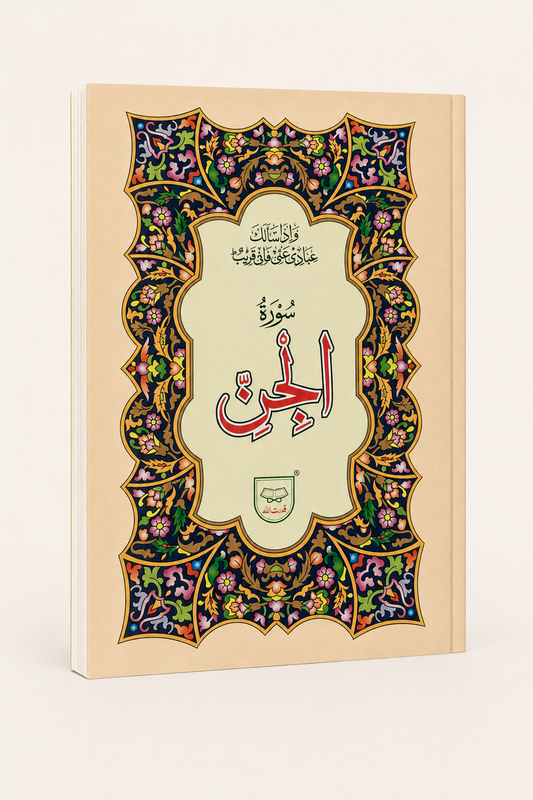 وَاِذَا سَاَلَكَ
عِبَادِیْ عَنِّیْ فَاِنِّیْ قَرِیْبٌ ؕ
سُوْرَۃُ
الْجِنِّ
®
قدرت اللہ